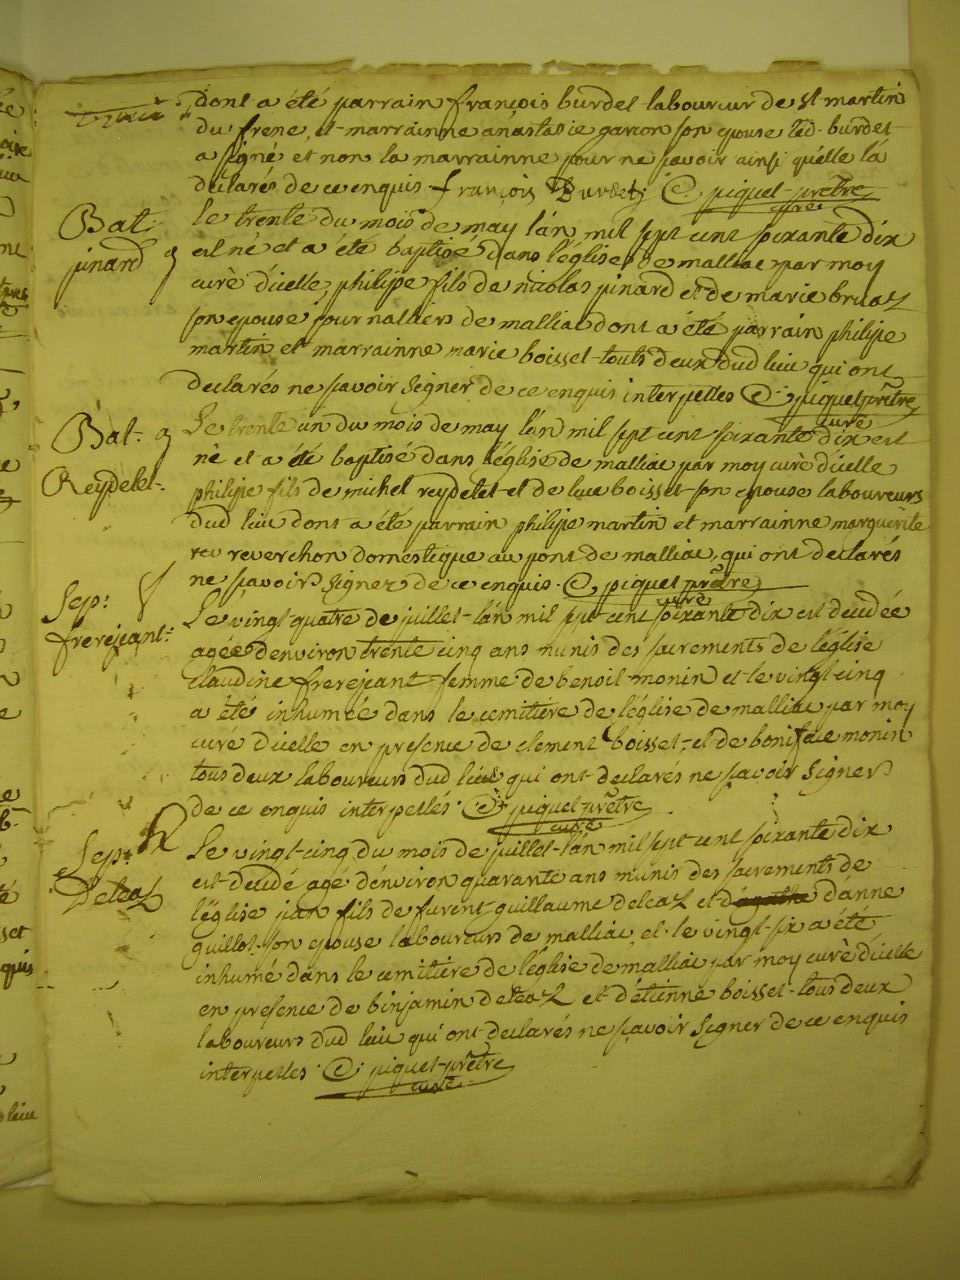 dont a été parrain françois burdet laboureur de st martin
du frene, et marrainne anastasie garcon son epouse led. burdet
a signé et non la marrainne pour ne scavoir ainsi qu'elle l'a
declarés de ce enquis françois Burdet piquet prêtre
curé
Bat. pinard
le trente du mois de may l'an mil sept cent soixante dix
est né et a été baptisé dans l'église de malliac par moy
curè d'icelle, philipe fils de nicolas pinard et de marie bruaz
son epouse journalliers de malliac dont a été parrain philipe
martin et marrainne marie boisset touts deux dud lieu qui ont
declarés ne scavoir signer de ce enquis interpelles piquet prêtre
curé
Bat. Reydelet
Le trente un du mois de may l'an mil sept cent soixante dix est
nè et a été baptisé dans l'église de malliac par moy curè d'icelle
philipe fils de michel reydelet et de luce boisset son epouse laboureurs
dud lieu dont a été parrain philipe martin et marrainne marguerite
reverchon domestique au pont de malliac, qui ont declarés
ne scavoir signer de ce enquis. piquet prêtre
curé
Sep: frerejeant
Le vingt quatre de juillet l'an mil sept cent soixante dix est decedée
agée d'environ trente cinq ans munis des sacrements de l'église
claudine frerejeant femme de benoit monin et le vingt cinq
a été inhumée dans le cemitiere de l'église de malliac par moy
curé d'icelle en presence de clement boisset, et de boniface monin
tous deux laboureurs dud lieu qui ont declarés ne scavoir signer
de ce enquis interpellés. piquet prêtre
curé
Sep: Deleaz
Le vingt cinq du mois de juillet l'an mil sept cent soixante dix
est decedé agé d'environ quarante ans munis des sacrements de
l'église jean fils de furent guillaume deleaz et d'anne
guillot son epouse laboureurs de malliac, et le vingt six a été
inhumé dans le cemitiere de l'église de malliac par moy curè d'icelle
en presence de binjamin deleaz et d'étienne boisset tous deux
laboureurs dud lieu qui ont declarés ne scavoir signer de ce enquis
interpelles. piquet prêtre
curé